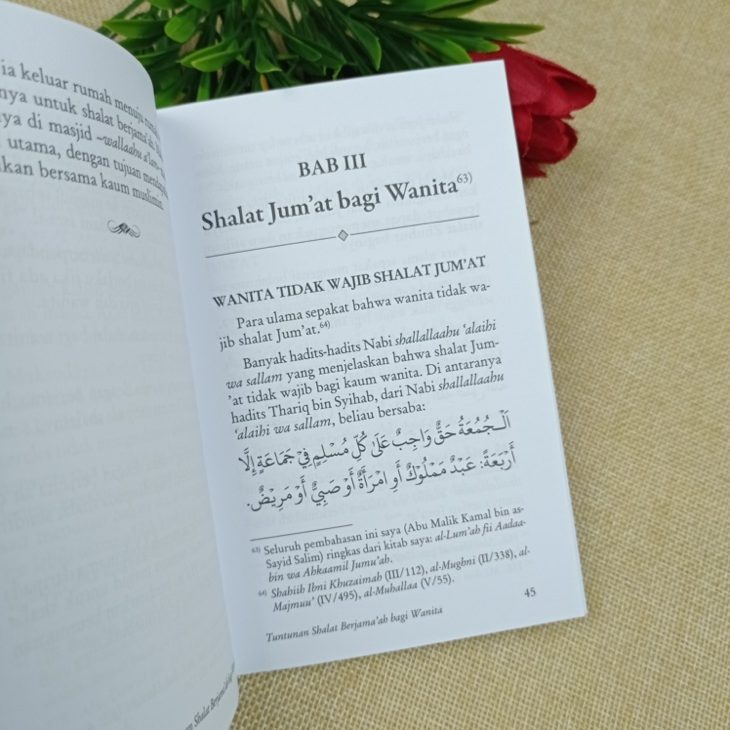 ia keluar rumah menuju
nya untuk shalat berjama'ah.
ya di masjid –wallaahu a'lam–
utama, dengan tujuan
kan bersama kaum muslimin.
BAB III
Shalat Jum'at bagi Wanita⁶³⁾
WANITA TIDAK WAJIB SHALAT JUM'AT
Para ulama sepakat bahwa wanita tidak wa-
jib shalat Jum'at.⁶⁴⁾
Banyak hadits-hadits Nabi shallallaahu 'alaihi
wa sallam yang menjelaskan bahwa shalat Jum-
'at tidak wajib bagi kaum wanita. Di antaranya
hadits Thariq bin Syihab, dari Nabi shallallaahu
'alaihi wa sallam, beliau bersaba:
اَلْجُمُعَةُ حَقٌّ وَاجِبٌ عَلَى كُلِّ مُسْلِمٍ فِيْ جَمَاعَةٍ إِلَّا
أَرْبَعَةً: عَبْدٌ مَمْلُوْكٌ أَوِ امْرَأَةٌ أَوْ صَبِيٌّ أَوْ مَرِيْضٌ.
⁶³⁾ Seluruh pembahasan ini saya (Abu Malik Kamal bin as-
Sayid Salim) ringkas dari kitab saya: al-Lum'ah fii Aadaa-
bin wa Ahkaamil Jumu'ah.
⁶⁴⁾ Shahiih Ibni Khuzaimah (III/112), al-Mughni (II/338), al-
Majmuu' (IV/495), al-Muhallaa (V/55).
Tuntunan Shalat Berjama'ah bagi Wanita
45